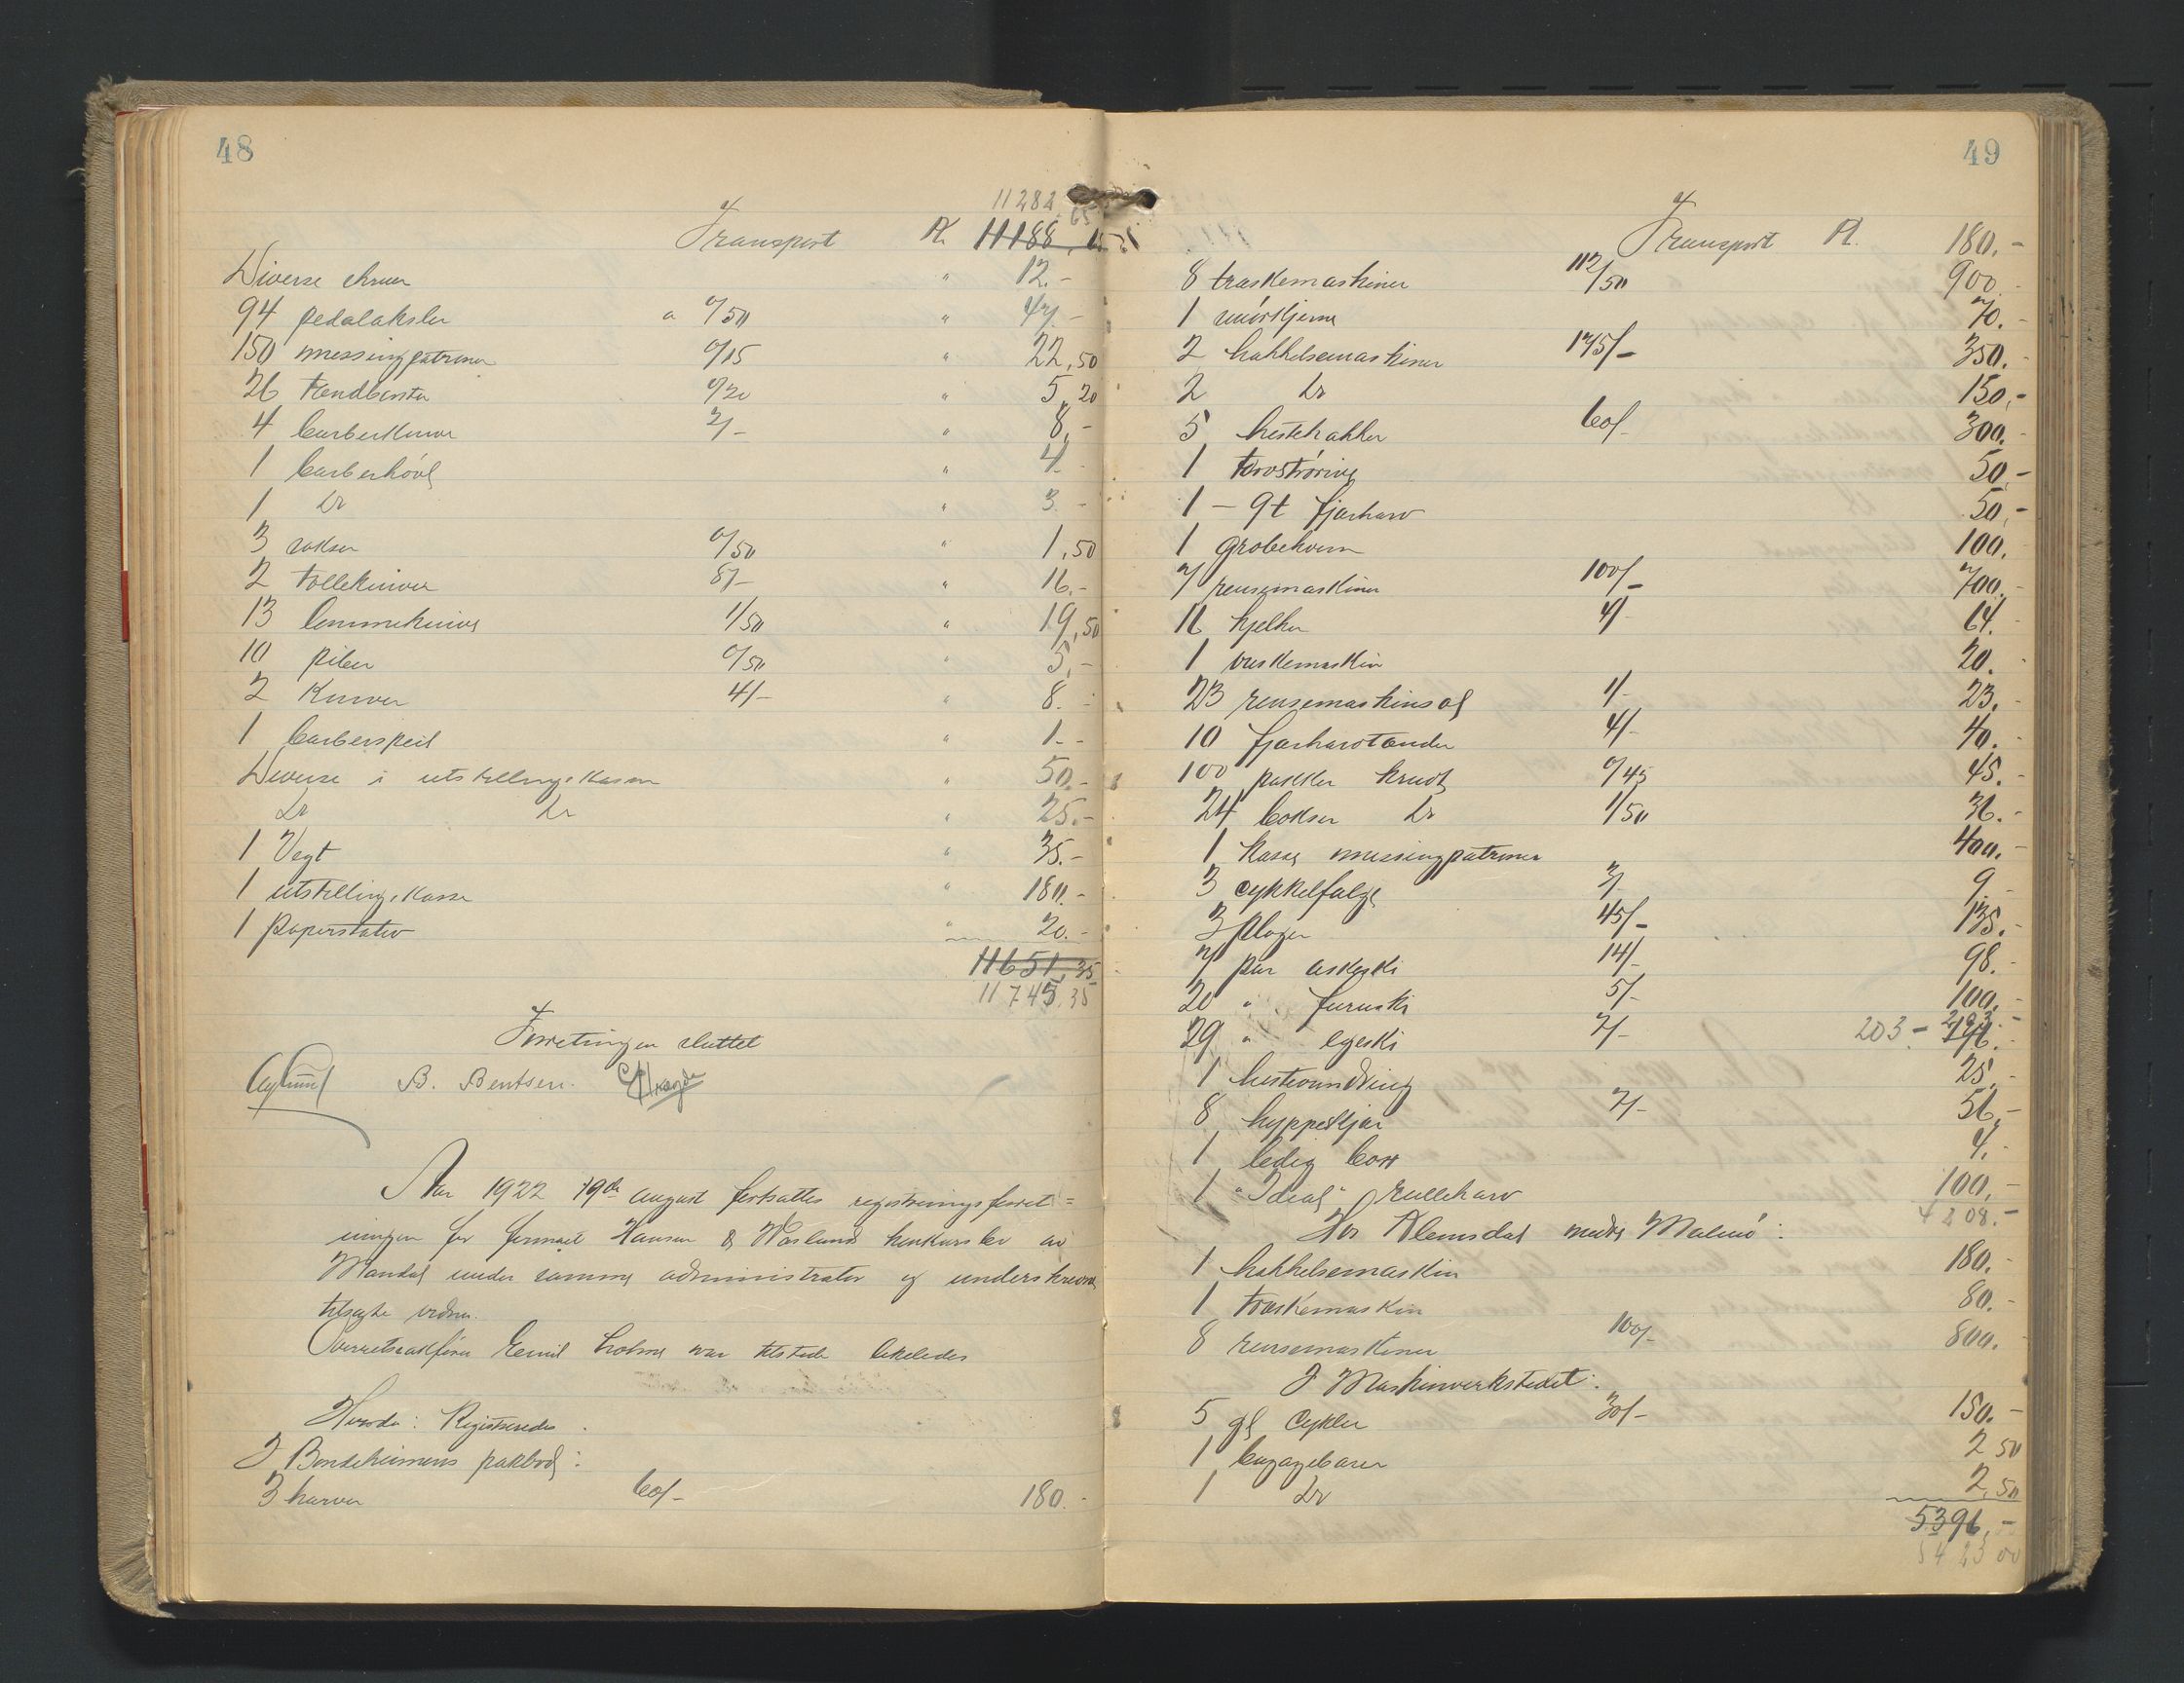 48
11282,65
Transport K. 11188,65
Diverse skruer " 12.-
94 pedalaksler a 0/50 " 47.-
150 messingpatroner 0/15 " 22,50
26 tandbørster 0/20 " 5,20
4 barberkniver 2/- " 8,-
1 barberhøvl " 4.-
1 Do " 3.-
3 sakser 0/50 " 1,50
2 tollekniver 8/- " 16.-
13 lommekniver 1/50 " 19,50
10 piber 0/50 " 5,-
2 Kurver 4/- " 8.-
1 barberspeil " 1.-
Diverse i utstillingskassen " 50.-
Do Do " 25.-
1 Vegt " 35.-
1 utstillingskasse " 180.-
1 papirstativ " 20.-
11651,35
11745,35
Forretningen sluttet
B. Bentsen.
Aar 1922 19de august fortsattes registreringsforret=
ningen for firmaet Hansen & Haslund konkursbo av
Mandal under samme administrator og underskrevne
tilsagte vidner.
Overretssakfører Emil Holme var tilstede likeledes
Herunder: Registreredes.
I Bondeheimens pakbod:
3 harver 60/- 180.-
49
Transport K. 180.-
8 træskemaskiner 112/50 900.-
1 smørkjerne 70.-
2 hakkelsemaskiner 175/- 350.-
2 Do 150,-
5 hestehakker 60/- 300.-
1 torvstrøriver 50,-
1 - 9t fjærharv 50,-
1 grøbekvern 100.
7 rensemaskiner 100/- 700.-
16 kjelker 4/- 64.-
1 vaskemaskin 20.-
23 rensemaskinsol 1/- 23.-
10 fjærharvtænder 4/- 40.-
100 pakker krudt 0/45 45.-
24 bokser Do 1/50 36.-
1 kasse messingpatroner 400.-
3 cykkelfælge 3/- 9.-
3 ploger 45/- 135.-
7 par askeski 14/- 98.-
20 " furuski 5/- 100.-
29 " egeski 7/- 203.- 203.-
1 hestvending 25.-
8 hyppeskjær 7/- 56,-
1 ledig boss 4.-
1 "Ideal" rulleharv 100,-
4208.-
Hos Klemsdal nedre Malmø:
1 hakkelsemaskin 180.-
1 træskemaskin 80.-
8 rensemaskiner 100/- 800.
I Maskinverkstedet:
5 gl Cykler 30/- 150.-
1 bagagebærer 2 50
1 Do 2,50
5396,-
5423 00